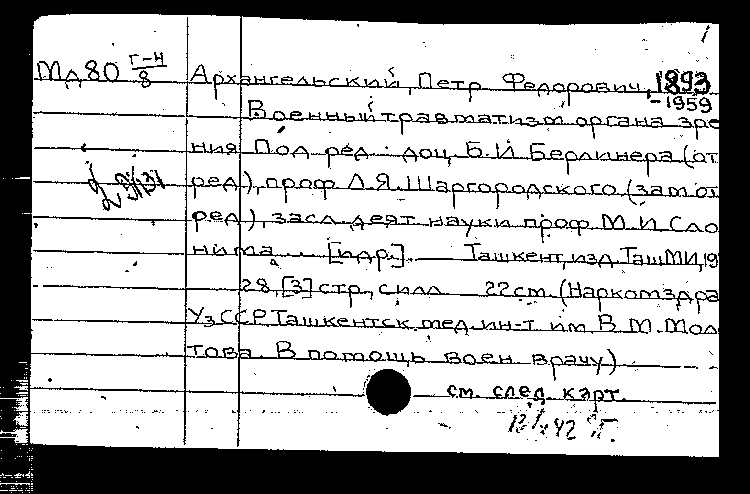 1
Мд80 Г-Н/8 Архангельский, Петр Федорович, 1893
-1959
Военный травматизм органа зре
ния Под ред. доц. Б.И Берлинера (от
ред), проф Л.Я.Шаргородского (зам от
ред), засл. деят науки проф М.И Сло
нима ... [и др.]. Ташкент, изд. ТашМИ, 19
28, [3] стр., с илл 22 см. (Наркомздра
УзССР, Ташкентск. мед. ин-т им В М. Моло
това. В помощь воен. врачу)
см. след. карт.